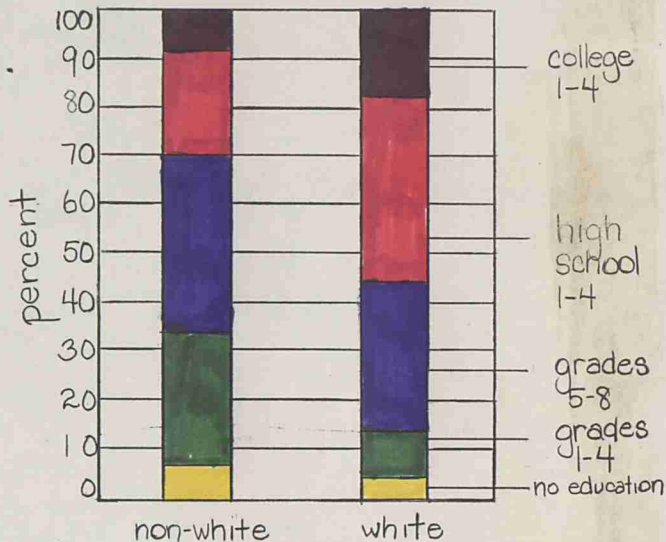 100
90
80
70
60
50
40
30
20
10
0
percent
non-white
white
college
1-4
high
school
1-4
grades
5-8
grades
1-4
no education